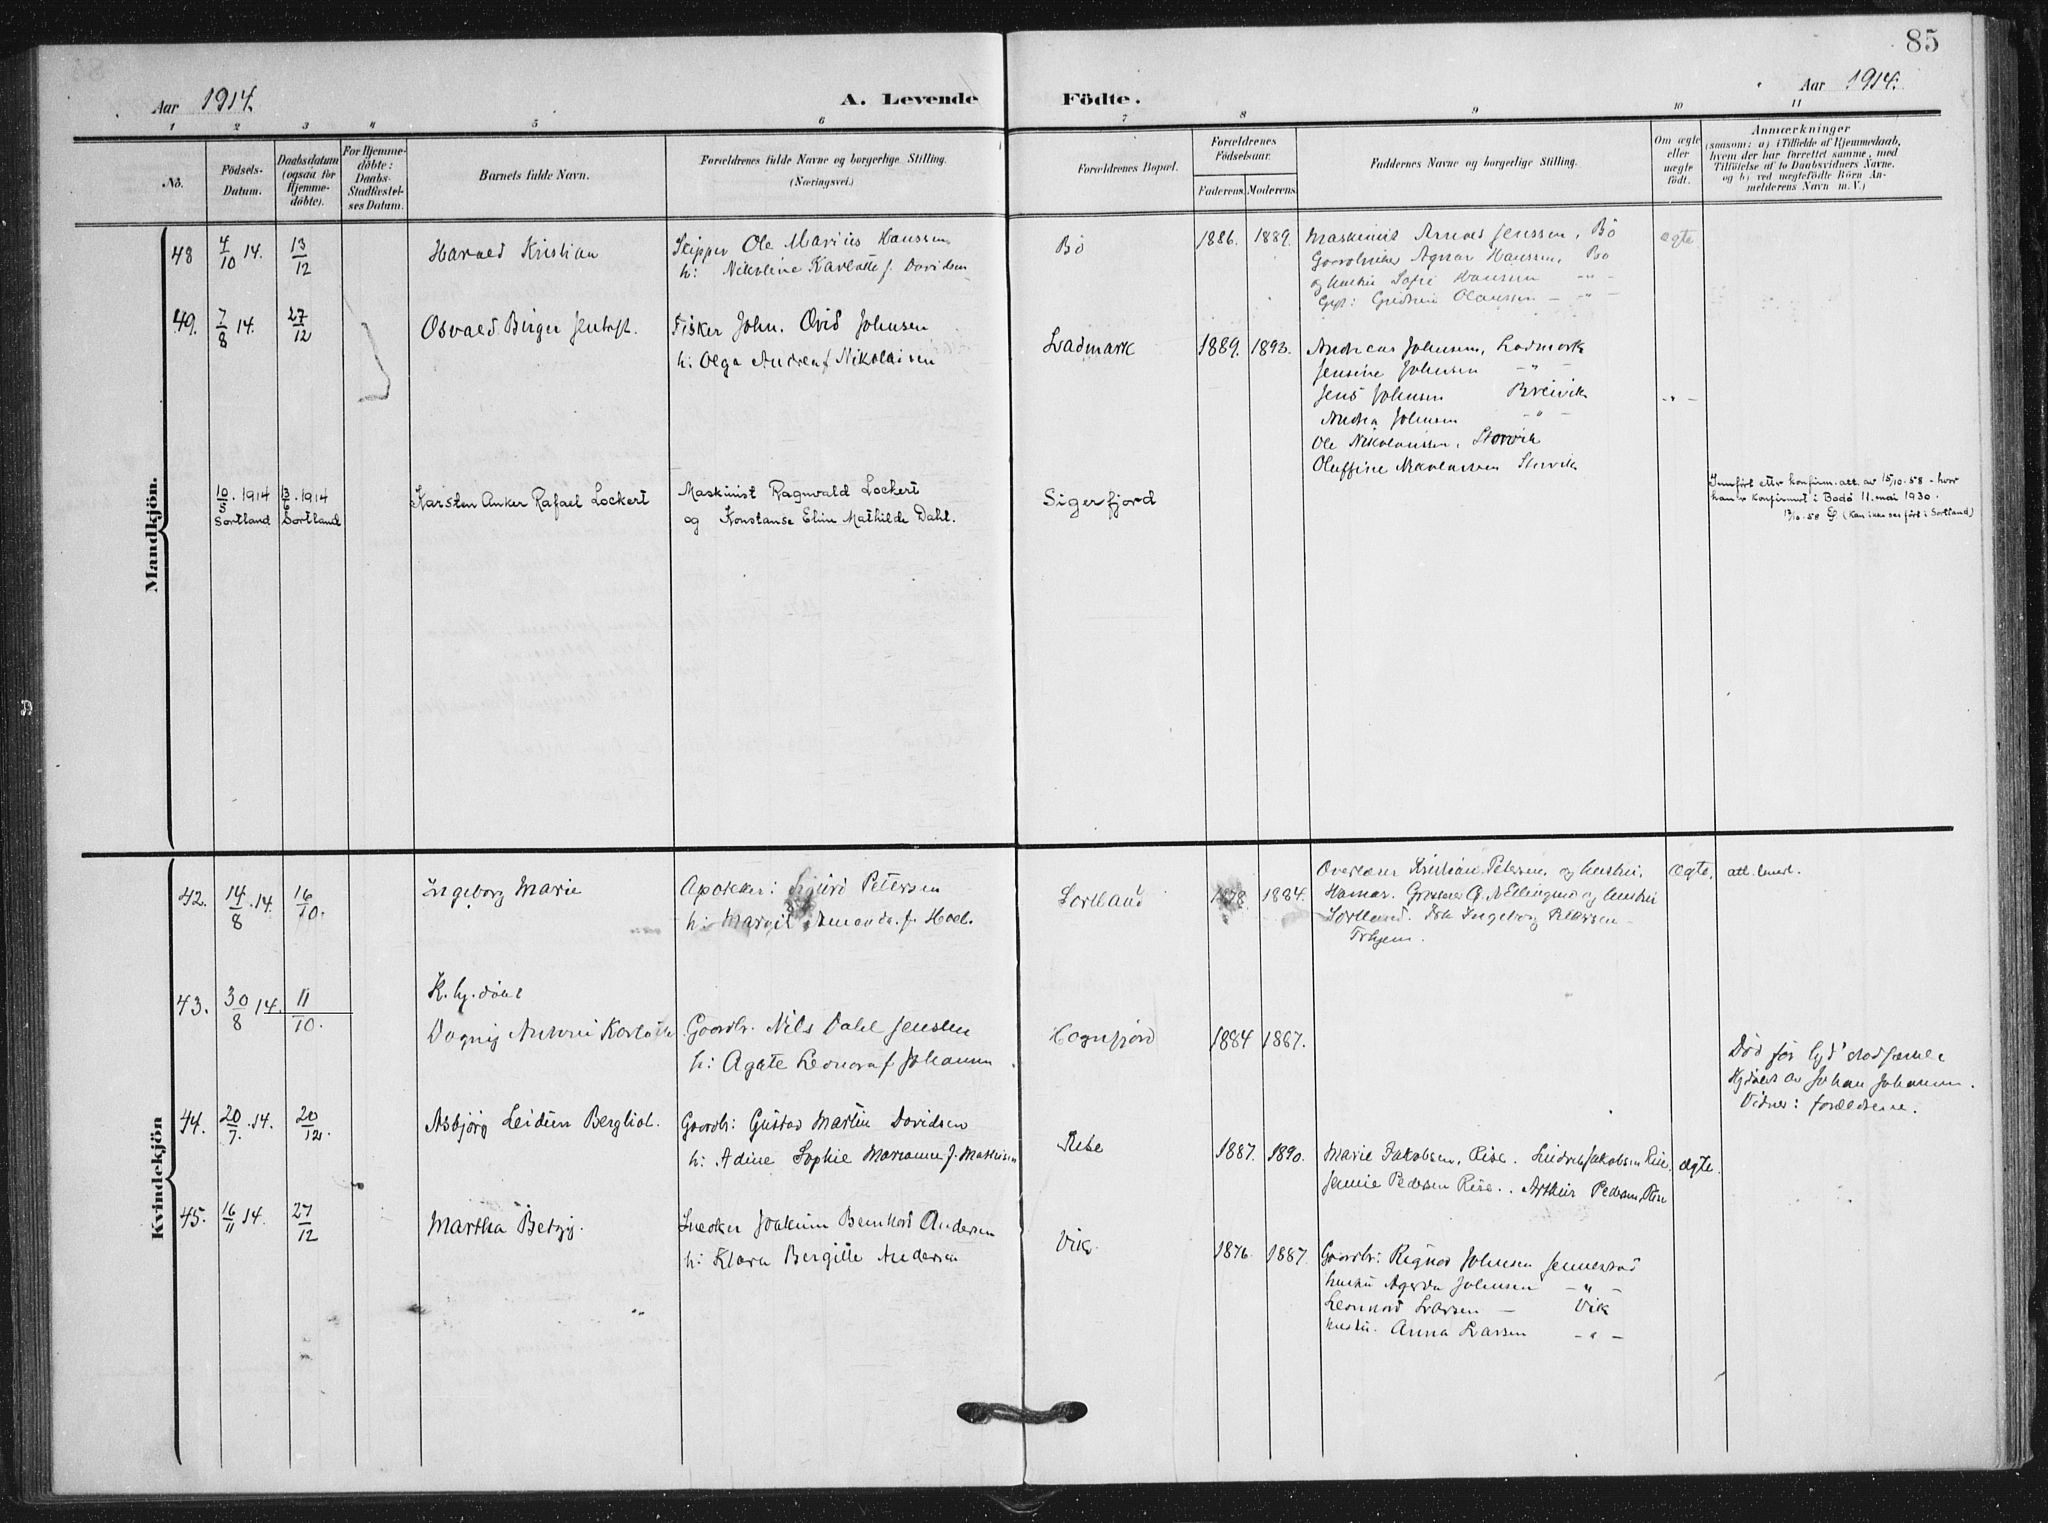 85
Aar 1914. A. Levende Födte. Aar 1914.
1 2 3 4 5 6 7 8 9 10 11
No.
Födsels-
Datum.
Daabsdatum
(ogsaa for
Hjemme-
döbte).
For Hjemme-
döbte:
Daabs-
Stadfæstel-
ses Datum.
Barnets fulde Navn.
Forældrenes fulde Navne og borgerlige Stilling.
(Næringsvei.)
Forældrenes Bopæl.
Forældrenes
Födselsaar.
Faderens. Moderens.
Faddernes Navne og borgerlige Stilling.
Om ægte
eller
uægte
födt.
Anmærkninger
(saasom: a) i Tilfælde af Hjemmedaab,
hvem der har forrettet samme, med
Tilföielse af to Daabsvidners Navne,
og b) ved uegtefödte Börn An-
melderens Navn m. V.)
Mandkjön.
48 4/10 14. 13/12 Harald Kristian
Skipper Ole Marius Hanssen
h: Nikoline Karlotte f. Davidsen
Bö 1886. 1889.
Maskinist Jenssen, Bö
Agnar Hanssen, Bö
og hustru Sofie Hanssen -"-
Olaussen -"-
ægte
49. 7/8 14. 27/12 Osvald Birger Jentoft.
Fisker John. Ovid Johnsen
h: Olga Andrea f Nikolaisen
Ladmark 1889. 1893.
Andreas Johnsen, Ladmark
Jensine Johnsen -"-
Jens Johnsen Breivik
Andrea Johnsen -"-
Ole Nikolaissen, Storvik
Oluffine Nikolaissen Storvik
-"-
10/5. 1914
Sortland
13/6. 1914
Sortland
Karsten Anker Rafael Lockert
Maskinist Ragnvald Lockert
og Konstanse Elin Mathilde Dahl.
Sigerfjord
Innført etter konfirm. att. av 15/10. 58 - hvor
han er konfirmert i Bodö 11. mai 1930.
(Kan ikke ses ført i Sortland)
Kvindekjön
42. 14/8. 14. 16/10. Ingeborg Marie
Apoteker: Sigurd Petersen
h: Margit Amanda. f. Hoel.
Sortland 1878. 1884.
Kristian Petersen og hustru,
Hamar. Ellingsen og hustru
Sortland. Frk Ingeborg Petersen
Trhjem.
Ægte,
43. 30/8 14. 11/10. K. hj. döbt
Dagny Antoni Karlotte
Gaardbr. Nils Dahl Jensten
h: Agate Leonora f Johansen
Hognfjord 1884 1887.
Död før
Hjdöbt av Johan Johansen.
Vidner: forældrene.
44. 20/7. 14. 20/12. Asbjörg Leidun Bergliot.
Gaardbr: Gustav Martin Davidsen
h: Adine Sophie Marianne f. Mathisen
Rise 1887. 1890.
Marie Jakobsen, Rise. Jakobsen Rise,
Jennie Pedersen Rise. Arthur Pedersen, Rise
Ægte.
45. 16/11 14. 27/12 Martha Betzy.
Snedker Joakim Bernhard Andersen
h: Klara Bergitte Andersen
Vik. 1876. 1887.
Gaardbr: Ragnvd Johnsen Jennestad
hustru Agerda Johnsen -"-
Leonhard Larsen - Vik
hustru. Anna Larsen -"-